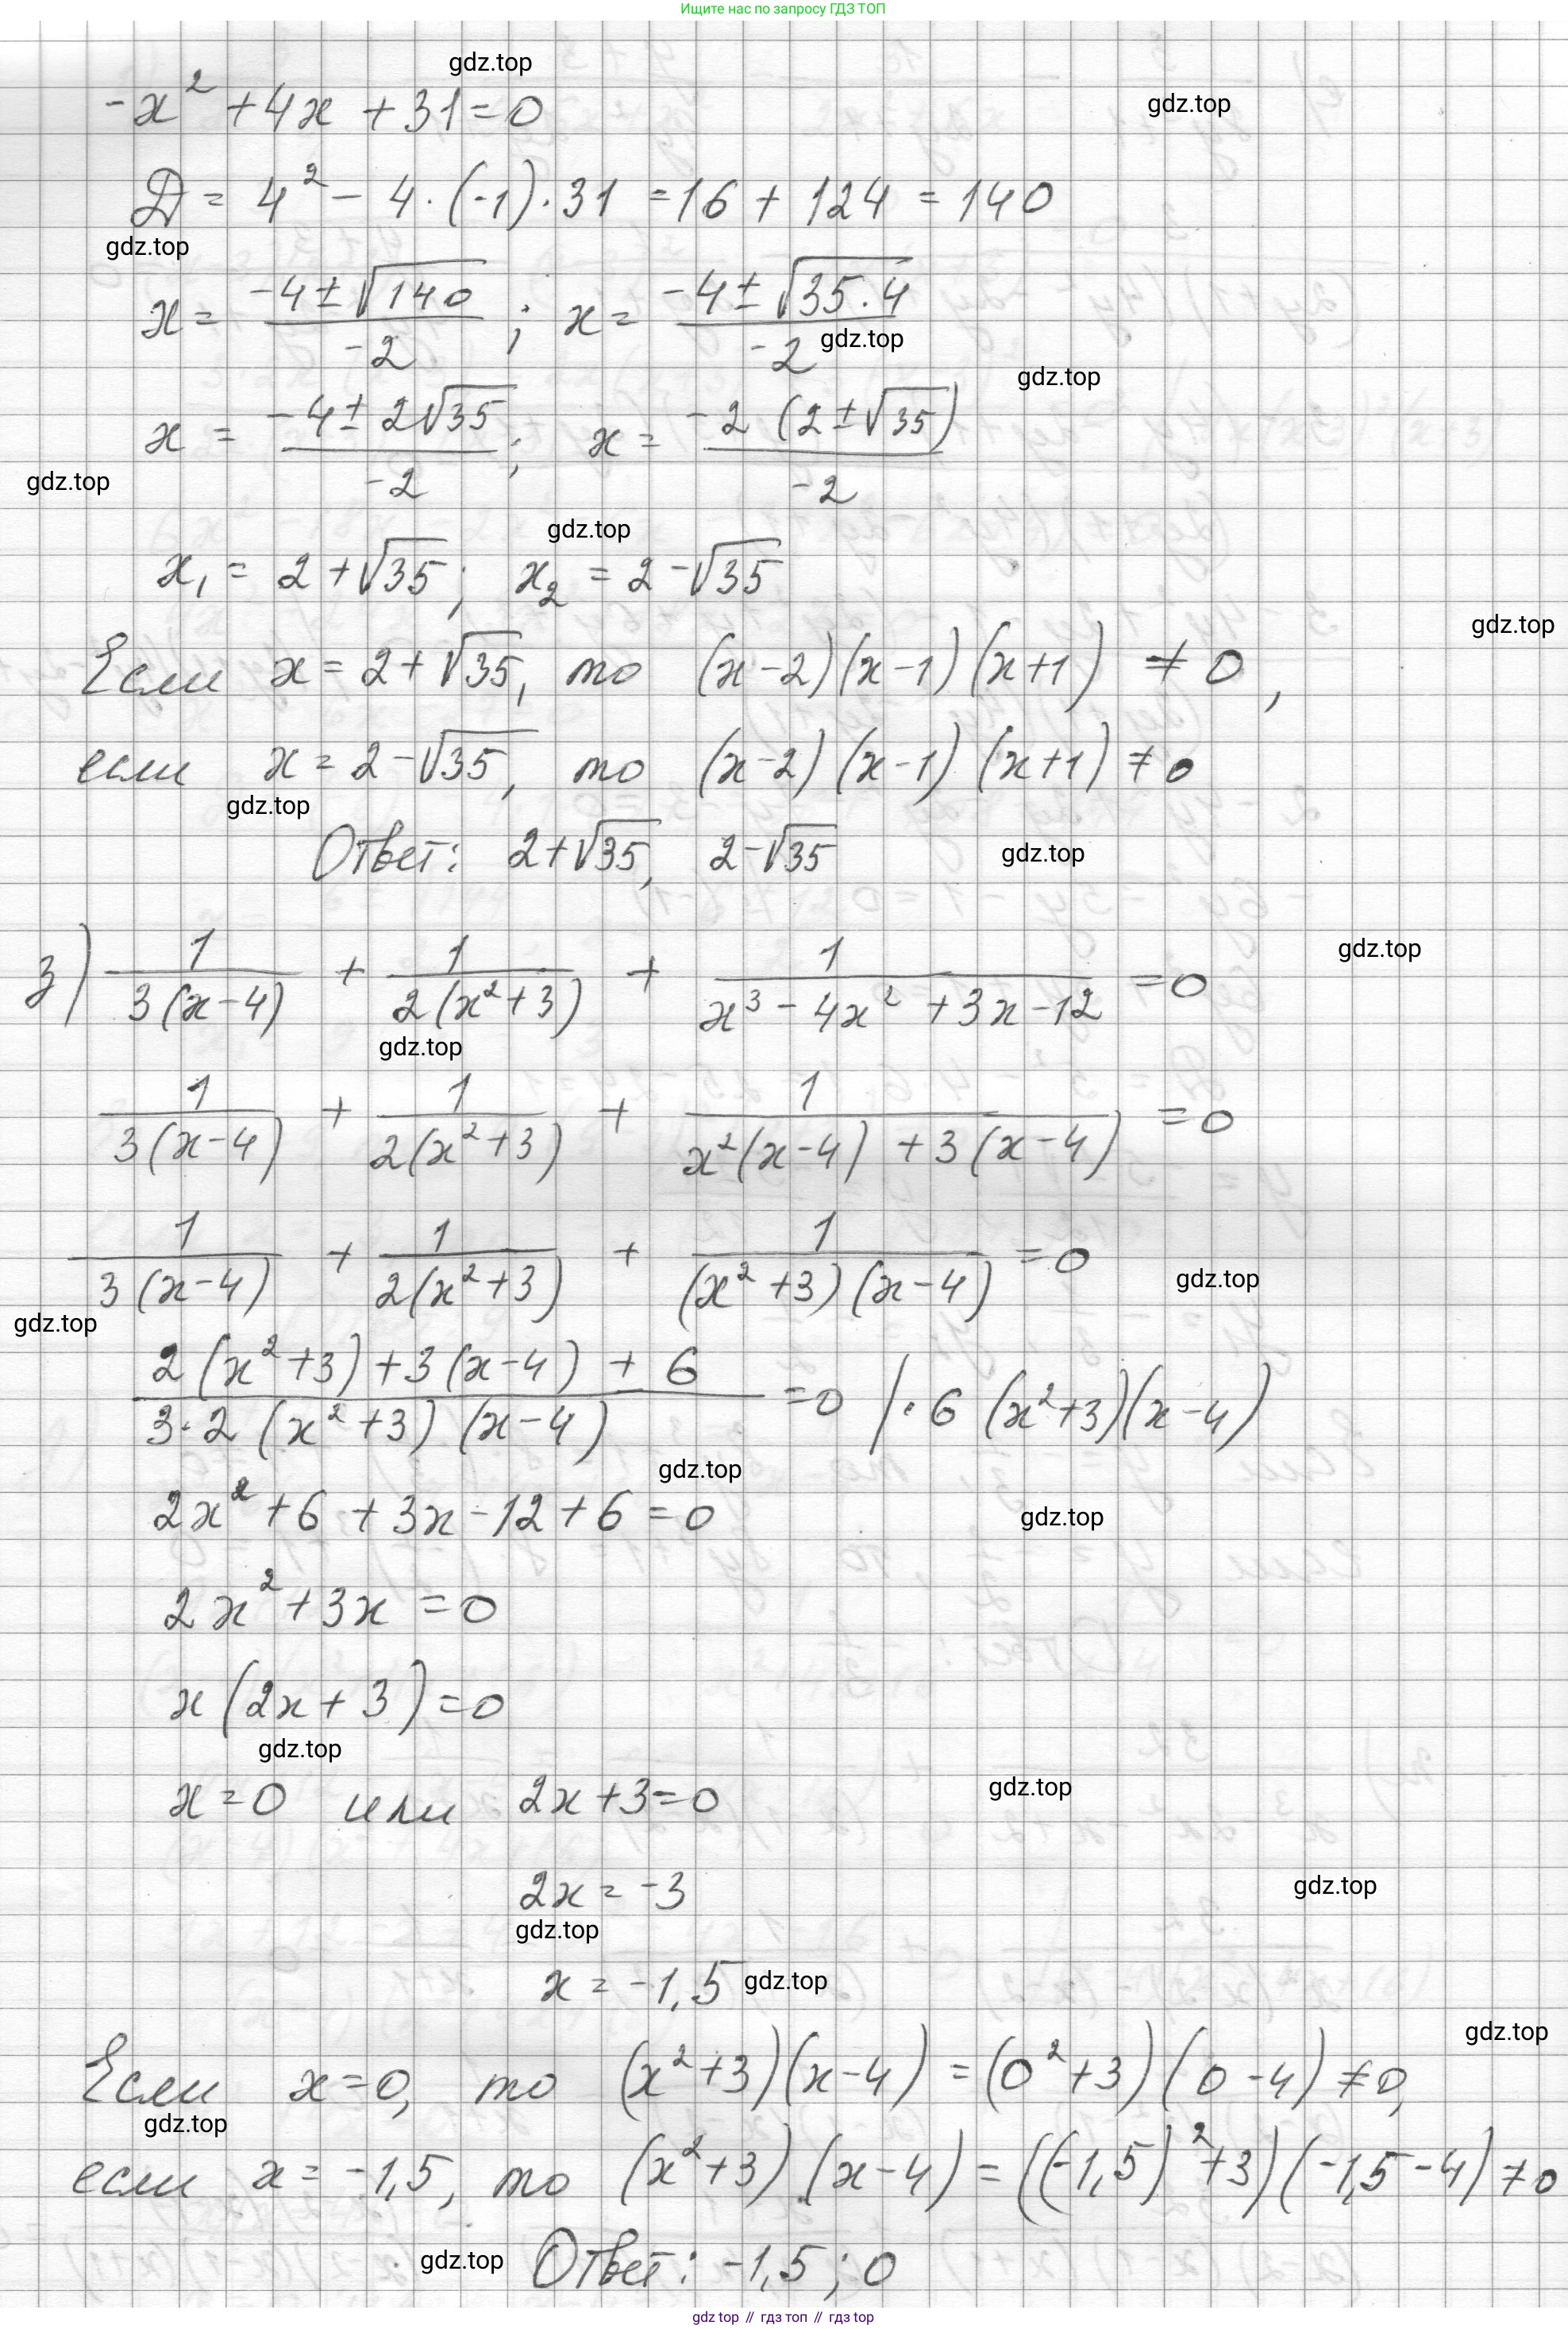 Ищите нас по запросу ГДЗ ТОП
gdz.top
-x² + 4x + 31 = 0
gdz.top
D = 4² - 4 · (-1) · 31 = 16 + 124 = 140
gdz.top
x = (-4 ± √140)/(-2) ; x = (-4 ± √(35 · 4))/(-2)
gdz.top
gdz.top
x = (-4 ± 2√35)/(-2) ; x = (-2 (2 ± √35))/(-2)
gdz.top
gdz.top
x₁ = 2 + √35 ; x₂ = 2 - √35
gdz.top
Если x = 2 + √35, то (x - 2)(x - 1)(x + 1) ≠ 0 ,
если x = 2 - √35, то (x - 2)(x - 1)(x + 1) ≠ 0
gdz.top
Ответ: 2 + √35, 2 - √35
gdz.top
gdz.top
з) 1/(3(x - 4)) + 1/(2(x² + 3)) + 1/(x³ - 4x² + 3x - 12) = 0
gdz.top
1/(3(x - 4)) + 1/(2(x² + 3)) + 1/(x²(x - 4) + 3(x - 4)) = 0
1/(3(x - 4)) + 1/(2(x² + 3)) + 1/((x² + 3)(x - 4)) = 0
gdz.top
gdz.top
(2(x² + 3) + 3(x - 4) + 6)/(3 · 2 (x² + 3)(x - 4)) = 0 / · 6 (x² + 3)(x - 4)
gdz.top
2x² + 6 + 3x - 12 + 6 = 0
gdz.top
2x² + 3x = 0
x(2x + 3) = 0
gdz.top
x = 0 или 2x + 3 = 0
gdz.top
2x = -3
gdz.top
gdz.top
x = -1,5
gdz.top
gdz.top
Если x = 0, то (x² + 3)(x - 4) = (0² + 3)(0 - 4) ≠ 0,
gdz.top
если x = -1,5, то (x² + 3)(x - 4) = ((-1,5)² + 3)(-1,5 - 4) ≠ 0
gdz.top
Ответ: -1,5 ; 0
gdz top // гдз топ // гдз top